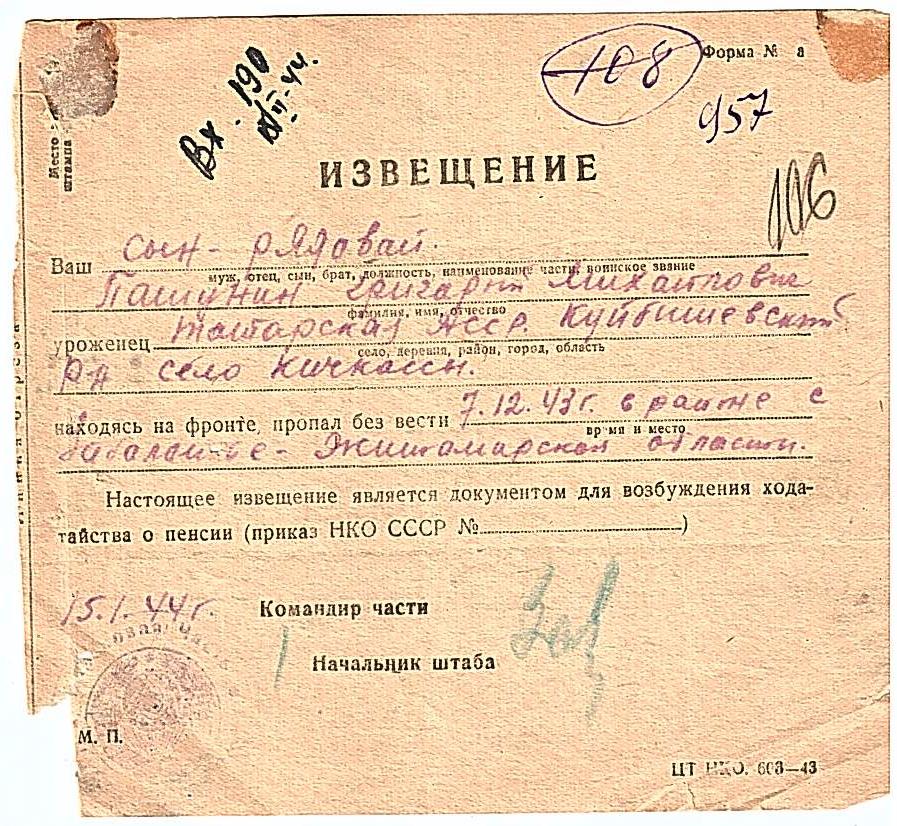 Вх. 190
II-44.
108
Форма № а
957
Место
штампа
ИЗВЕЩЕНИЕ
106
Ваш сын - рядовай.
муж, отец, сын, брат, должность, наименование части, воинское звание
Григарий Михаиловичь
фамилия, имя, отчество
уроженец Татарская Асср. Куйбишевский
село, деревня, район, город, область
р-н село Кичкассы.
находясь на фронте, пропал без вести 7.12.43г. в районе с
время и место
Житамирской области.
Настоящее извещение является документом для возбуждения хода-
тайства о пенсии (приказ НКО СССР № )
15.1.44г.
Командир части
Начальник штаба
М. П.
ЦТ НКО. 603—43